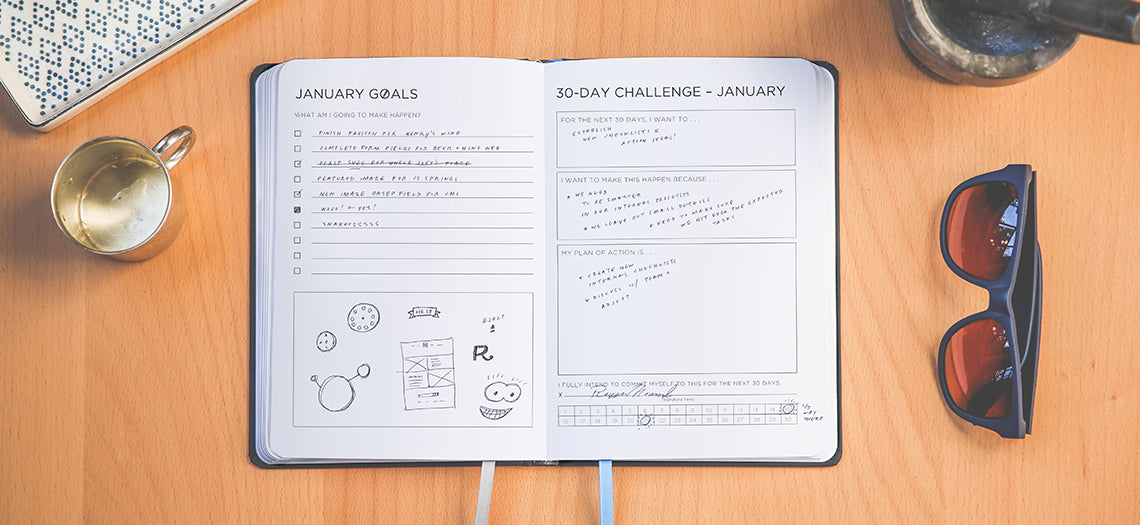 JANUARY GØALS
WHAT AM I GOING TO MAKE HAPPEN?
FINISH FAVICON FOR HENRY'S WINE
COMPLETE FORM FIELDS FOR BEER + WINE WEB
PLACE SVGS FOR UNCLE JOEY'S PLATE
FEATURED IMAGE FOR 17 SPRINGS
NEW IMAGE BASED FIELD FOR CMS
WOOO! ← YES!
SNAKESSSSSS
R
30-DAY CHALLENGE – JANUARY
FOR THE NEXT 30 DAYS, I WANT TO . . .
ESTABLISH
NEW CHECKLISTS &
ACTION ITEMS!
I WANT TO MAKE THIS HAPPEN BECAUSE . . .
* WE NEED
TO BE SMARTER
IN OUR INTERNAL PROCESSES
* WE LEAVE OUT SMALL DETAILS
* NEED TO MAKE SURE
WE HIT EVEN THE EXPECTED
TASKS
MY PLAN OF ACTION IS . . .
* CREATE NEW
INTERNAL CHECKLISTS
* DISCUSS W/ TEAM +
ADJUST
I FULLY INTEND TO COMMIT MYSELF TO THIS FOR THE NEXT 30 DAYS.
X
(signature here)
1 2 3 4 5 6 7 8 9 10 11 12 13 14
16 17 18 19 20 22 23 24 25 26 27 28 29 30
1/2
WAY
THERE